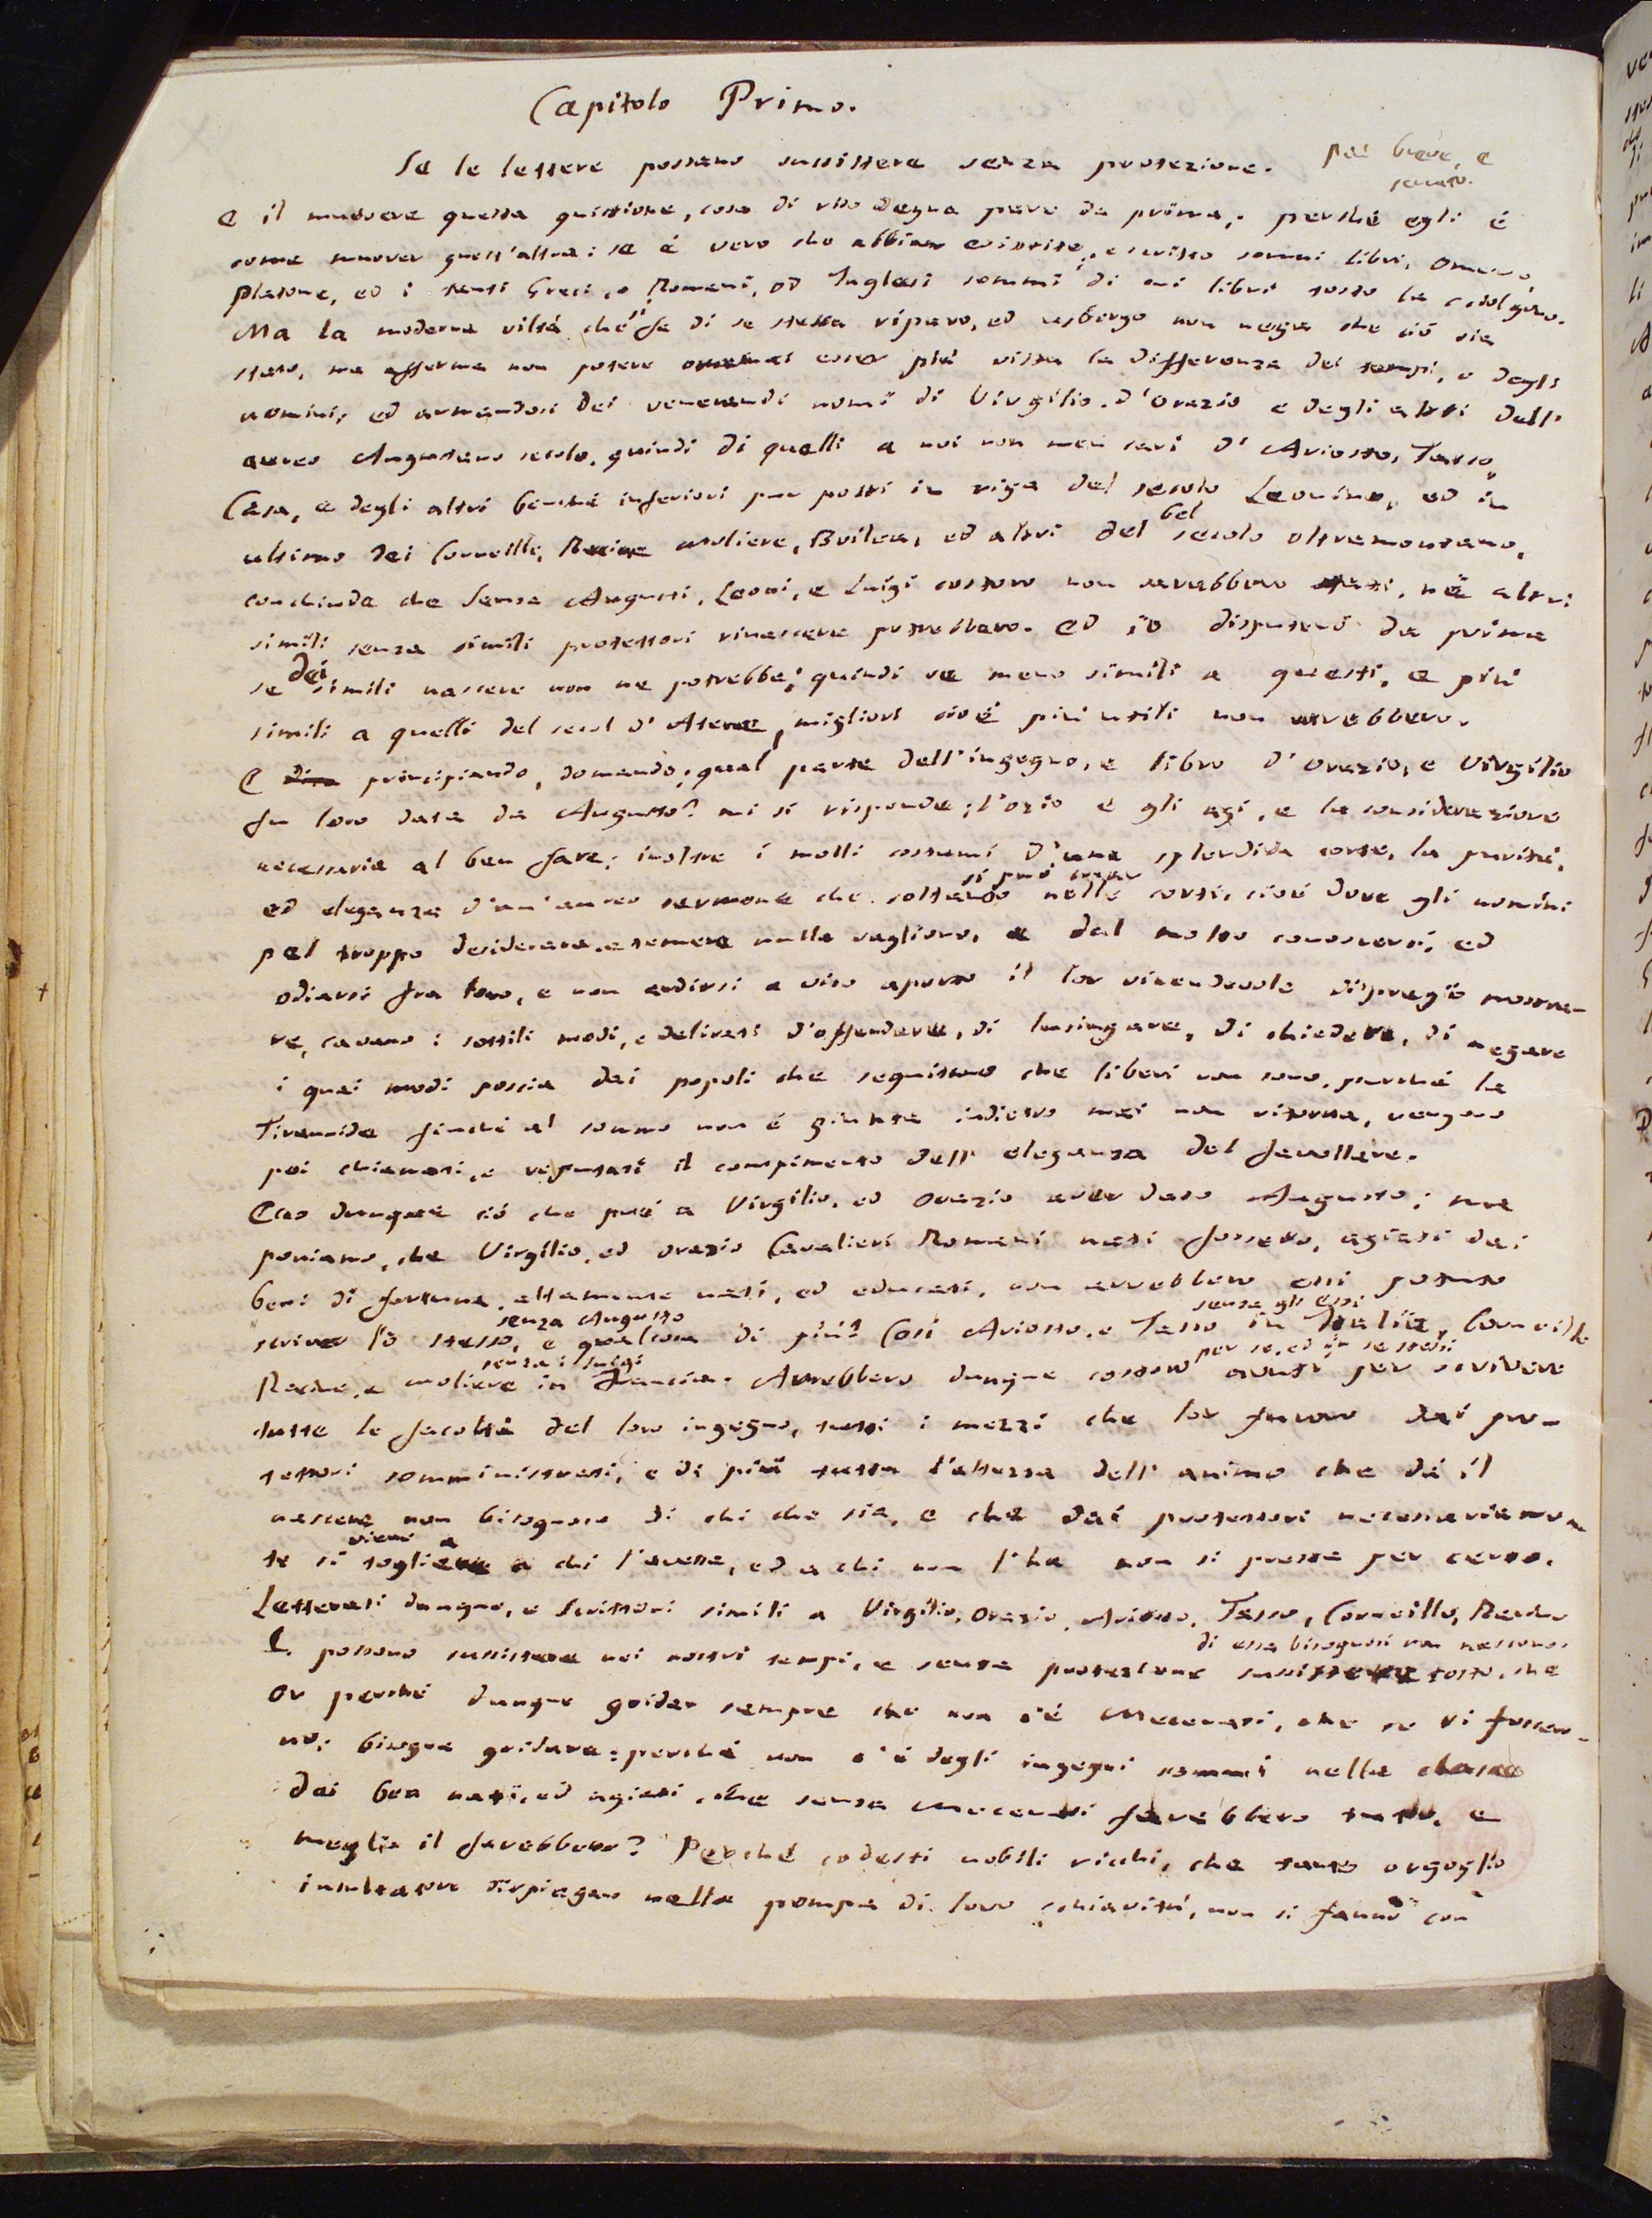 Capitolo Primo.
Se le lettere possano sussistere senza protezione. più breve, e
serrato.
E il muovere questa quistione, cosa di riso degna pare da prima; perché egli è
come muover quest'altra: se è vero che abbian esistito, e scritto sommi libri, Omero,
Platone, ed i tanti Greci, e Romani, ed Inglesi sommi di cui libri tosto la sciolgono.
Ma la moderna viltà che si fa di se stessa riparo, ed usbergo non nega che ciò sia
stato, ma afferma non potere omai esser più vista la differenza dei tempi, e degli
uomini; ed armandosi dei venerandi nomi di Virgilio, d'Orazio e degli altri dell'
aureo Augustano secolo, quindi di quelli a noi non men cari d'Ariosto, Tasso,
Casa, e degli altri benché inferiori pur posti in riga del secolo Leonino, ed in
ultimo dei Corneille, Racine Moliere, Boileau, ed altri del bel secolo oltremontano,
conchiude che senza Augusti, Leoni, e Luigi costoro non sarebbero stati, né altri
simili senza simili protettori rinascere potrebbero. Ed io disputerò da prima
se dei simili nascere non ne potrebbe; quindi se meno simili a questi, e più
simili a quelli del secol d'Atene, migliori cioè più utili non sarebbero.
E principiando, domando; qual parte dell'ingegno, e libro d'Orazio, e Virgilio
fu loro data da Augusto? mi si risponde; l'ozio e gli agi, e la considerazione
necessaria al ben fare; inoltre i molli costumi d'una splendida corte, la purità,
si può crear
ed eleganza d'un'aureo sermone che soltando nelle corti, cioè dove gli uomini
pel troppo desiderare, e temere nulla vagliono, e dal molto conoscersi, ed
odiarsi fra loro, e non ardirsi a viso aperto il lor vicendevole dispregio mostra-
re, cavano i sottili modi, e delicati d'offendere, di lusingare, di chiedere, di negare
i quai modi poscia dai popoli che seguitano che liberi non sono, perché la
Tirannide finché al sommo non è giunta indietro mai non ritorna, vengono
poi chiamati, e reputati il compimento dell'eleganza del favellare.
Ecco dunque ciò che può a Virgilio, ed Orazio aver dato Augusto; ma
poniamo, che Virgilio, ed Orazio Cavalieri Romani nati fossero, agiati dai
beni di fortuna, altamente nati, ed educati, non avrebbero essi potuto
senza Augusto senza gli Essi
scriver lo stesso, e qualcosa di più? Così Ariosto, e Tasso in Italia, Corneille
senza i Luigi per se, ed in se stessi
Racine, e Moliere in Francia. Avrebbero dunque costoro avuti per scrivere
tutte le facoltà del loro ingegno, tutti i mezzi che lor furono dai pro-
tettori somministrati, e di più tutta l'altezza dell'animo che dà il
nascere non bisognoso di chi che sia, e che dai protettori necessariamen
vieni a
te si togliere a chi l'avesse, ed a chi non l'ha non si presta per certo.
Letterati dunque, e scrittori simili a Virgilio, Orazio, Ariosto, Tasso, Corneille, Racine
di essa bisognosi non nascono.
possono sussistere nei nostri tempi, e senza protezione sussistere tosto, che
Or perché dunque gridar sempre che non c'è Mecenati, che se vi fosser-
no; bisogna gridare: perché non c'è degli ingegni sommi nella classe
dei ben nati, ed agiati, che senza Mecenati farebbero tutto, e
meglio il farebbero? Perché codesti nobili ricchi, che tanto orgoglio
insultatore dispiegano nella pompa di loro schiavitù, non si fanno con